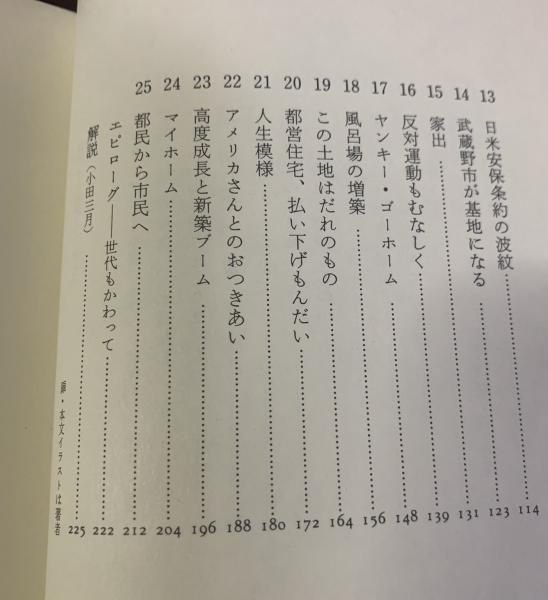 13 日米安保条約の波紋……114
14 武蔵野市が基地になる……123
15 家出……131
16 反対運動もむなしく……139
17 ヤンキー・ゴーホーム……148
18 風呂場の増築……156
19 この土地はだれのもの……164
20 都営住宅、払い下げもんだい……172
21 人生模様……180
22 アメリカさんとのおつきあい……188
23 高度成長と新築ブーム……196
24 マイホーム……204
25 都民から市民へ……212
エピローグ――世代もかわって……222
解説（小田三月）……225
扉・本文イラストは著者